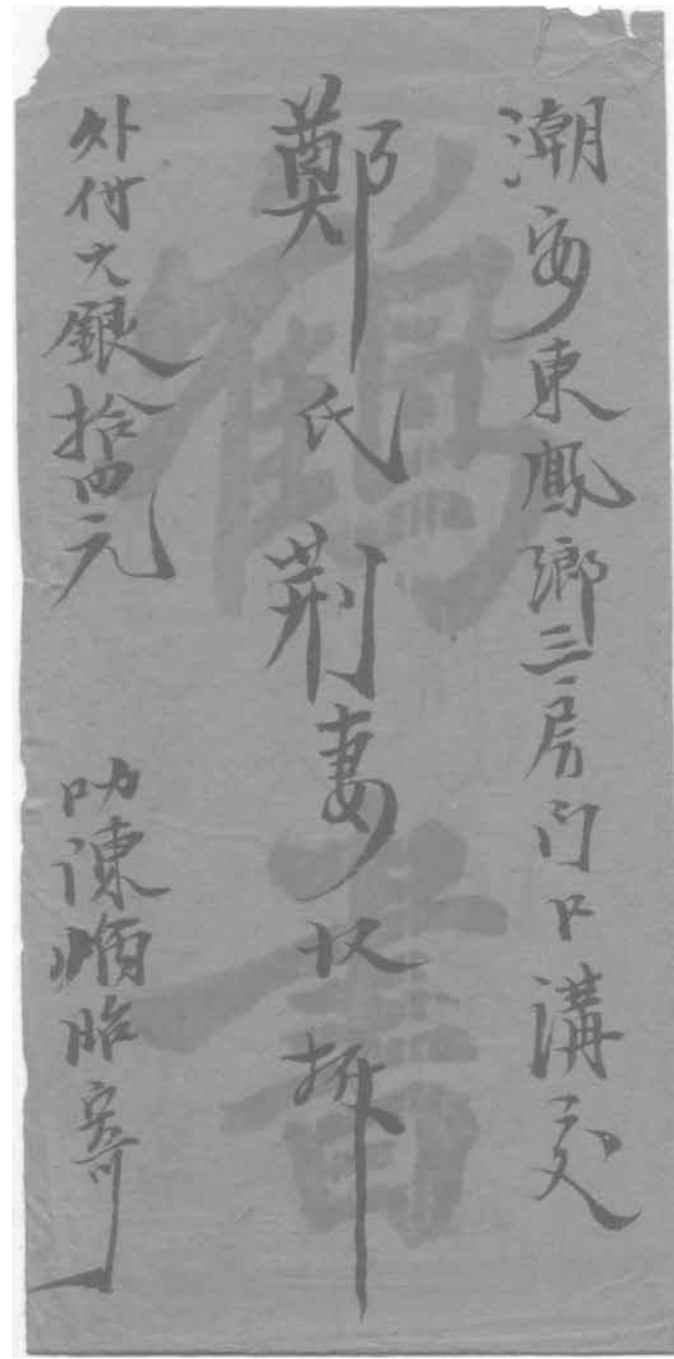 潮安東鳳鄉三房门口溝交
鄭氏荆妻收拆
外付大銀拾四元
叻陳順貽寄
鶴書